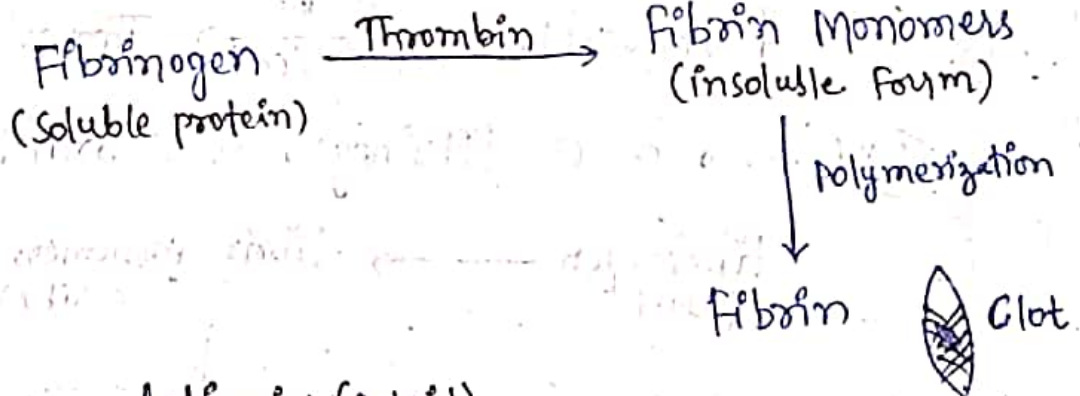 Fibrinogen
(Soluble protein)
Thrombin
Fibrin Monomers
(insoluble form)
polymerization
Fibrin
Clot